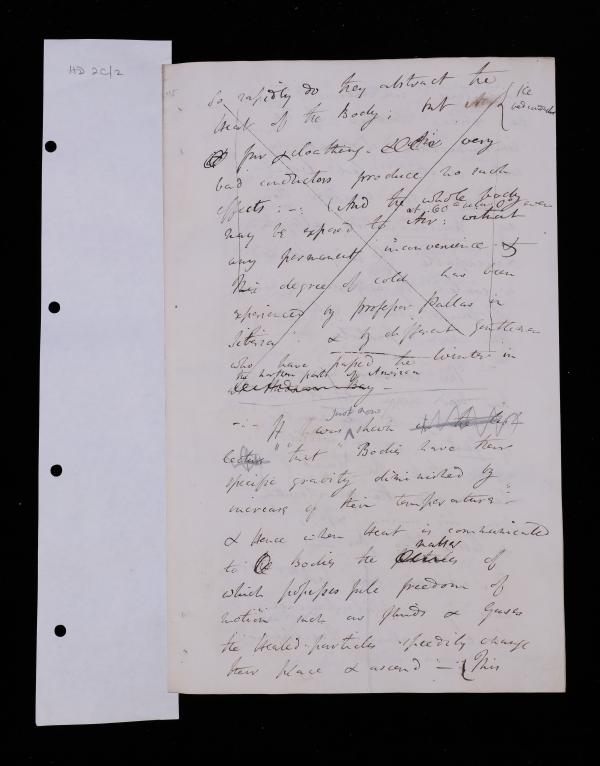 HD 2C/2
So rapidly do they abstract the
Heat of the Body; but
the
bad conductor
fur & cloathing - & Air very
bad conductors produce no such
effects : -. (And the whole body
at -60 = below 0° even
may be exposed to Air: without
any permanent inconvenience. &
This degree of cold has been
experienced by Professor Pallas in
Siberia & by different Gentlemen
who have passed the Winter in
the northern parts of American
Hudsons Bay -
just now
-:- It was shewn in the last
lecture "that" Bodies have their
specific gravity diminished by
increase of their temperature" -
& Hence when Heat is communicated
matter
to Bodies the of
which possesses free freedom of
motion such as fluids & Gases
the Heated particles speedily change
their place & ascend -:- (This